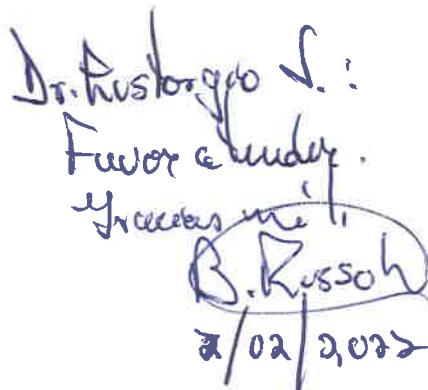 Dr. Rustorgio S.:
Favor atender.
Gracias mil,
B. Russoh
2/02/2,022